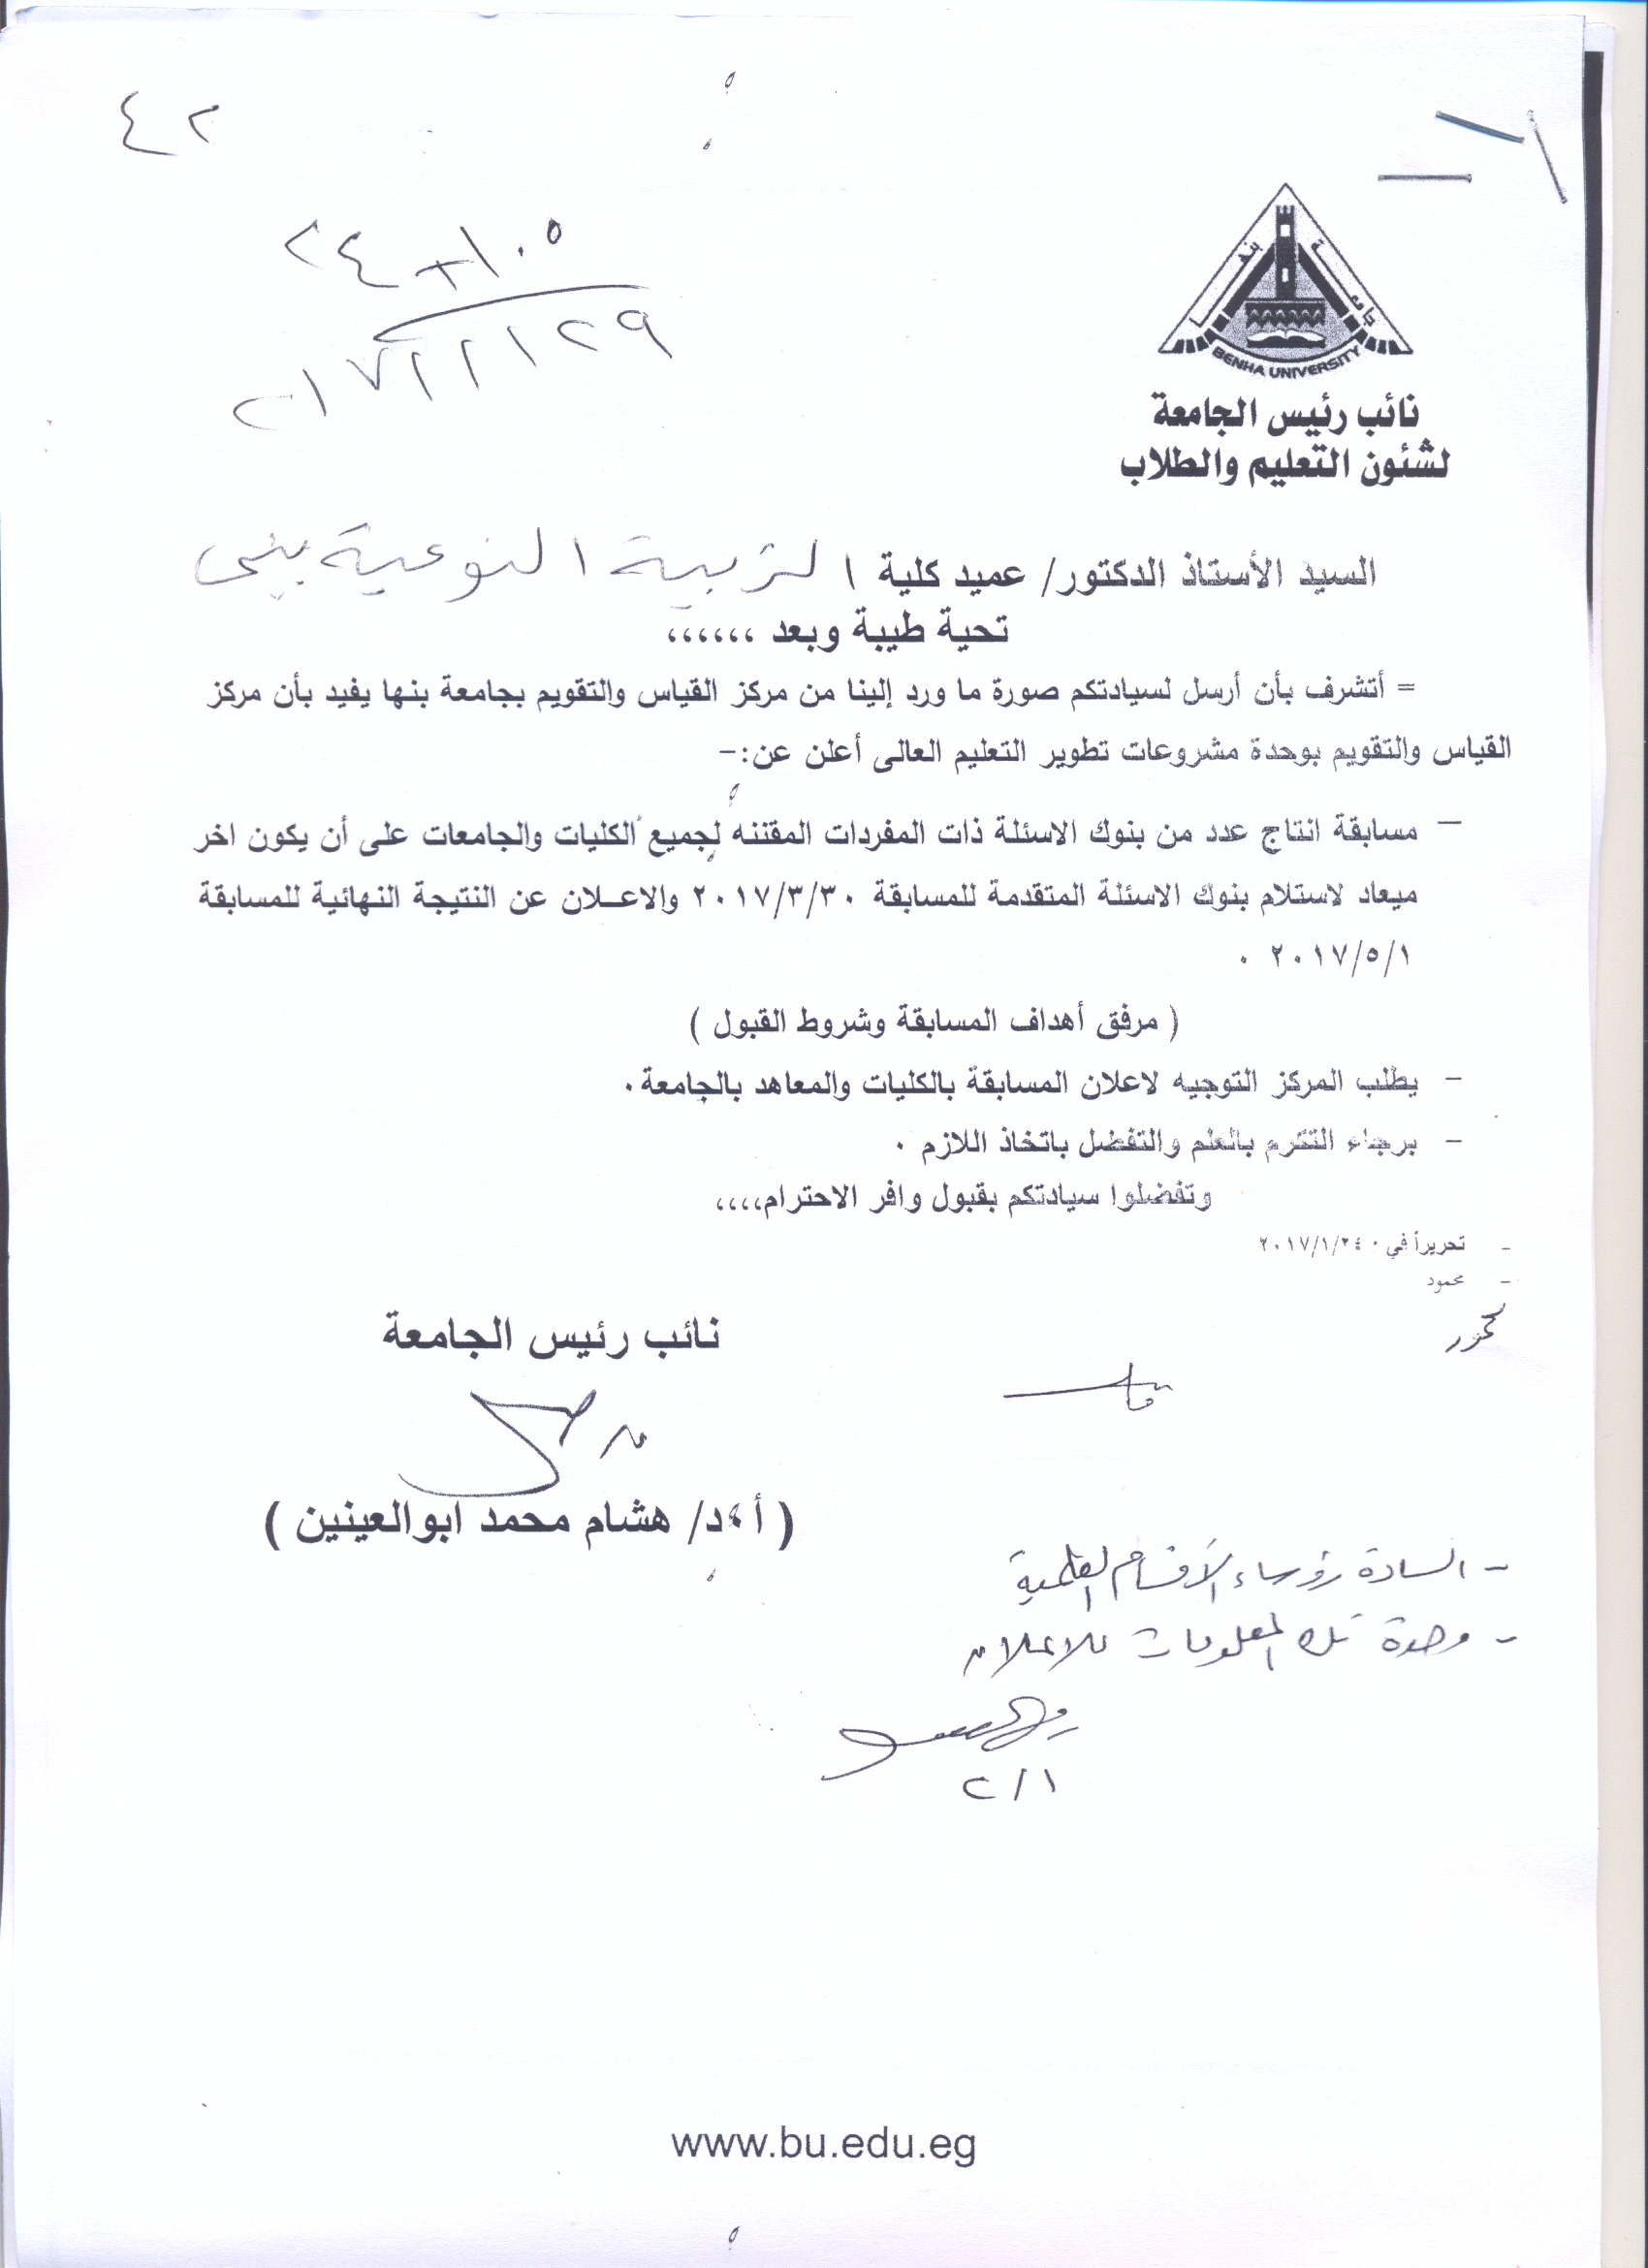 ٤٢
١٠٥ + ٢٤
٢٠١٧/١/٢٩
BENHA UNIVERSITY
نائب رئيس الجامعة
لشئون التعليم والطلاب
السيد الأستاذ الدكتور/ عميد كلية التربية النوعية ببنها
تحية طيبة وبعد ،،،،،،
= أتشرف بأن أرسل لسيادتكم صورة ما ورد إلينا من مركز القياس والتقويم بجامعة بنها يفيد بأن مركز
القياس والتقويم بوحدة مشروعات تطوير التعليم العالى أعلن عن:-
- مسابقة انتاج عدد من بنوك الاسئلة ذات المفردات المقننه لجميع الكليات والجامعات على أن يكون اخر
ميعاد لاستلام بنوك الاسئلة المتقدمة للمسابقة ٢٠١٧/٣/٣٠ والاعـلان عن النتيجة النهائية للمسابقة
٢٠١٧/٥/١ ٠
( مرفق أهداف المسابقة وشروط القبول )
- يطلب المركز التوجيه لاعلان المسابقة بالكليات والمعاهد بالجامعة ٠
- برجاء التكرم بالعلم والتفضل باتخاذ اللازم ٠
وتفضلوا سيادتكم بقبول وافر الاحترام،،،،
- تحريراً في ٢٠١٧/١/٢٤٠
- محمود
نائب رئيس الجامعة
( أ.د/ هشام محمد ابوالعينين )
- السادة رؤساء الأقسام العلمية
- وحدة تك المعلومات للاعلان
٢/١
www.bu.edu.eg